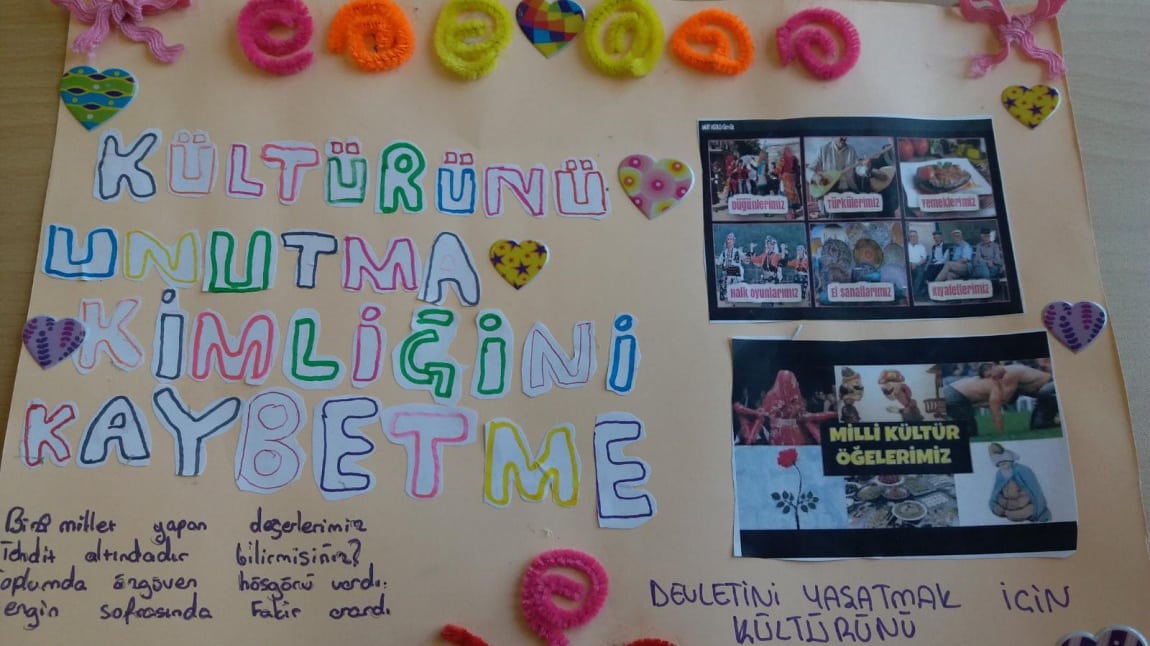 KÜLTÜRÜNÜ
UNUTMA
KİMLİĞİNİ
KAYBETME
Düğünlerimiz
Türkülerimiz
Yemeklerimiz
Halk oyunlarımız
El sanatlarımız
Kıyafetlerimiz
MİLLİ KÜLTÜR
ÖĞELERİMİZ
millet yapan değerlerimiz
Tehdit altındadır bilirmisiniz?
oplumda özgüven hösgörü vardı.
engin sofrasında Fakir
DEVLETİNİ YAŞATMAK İÇİN
KÜLTÜRÜNÜ